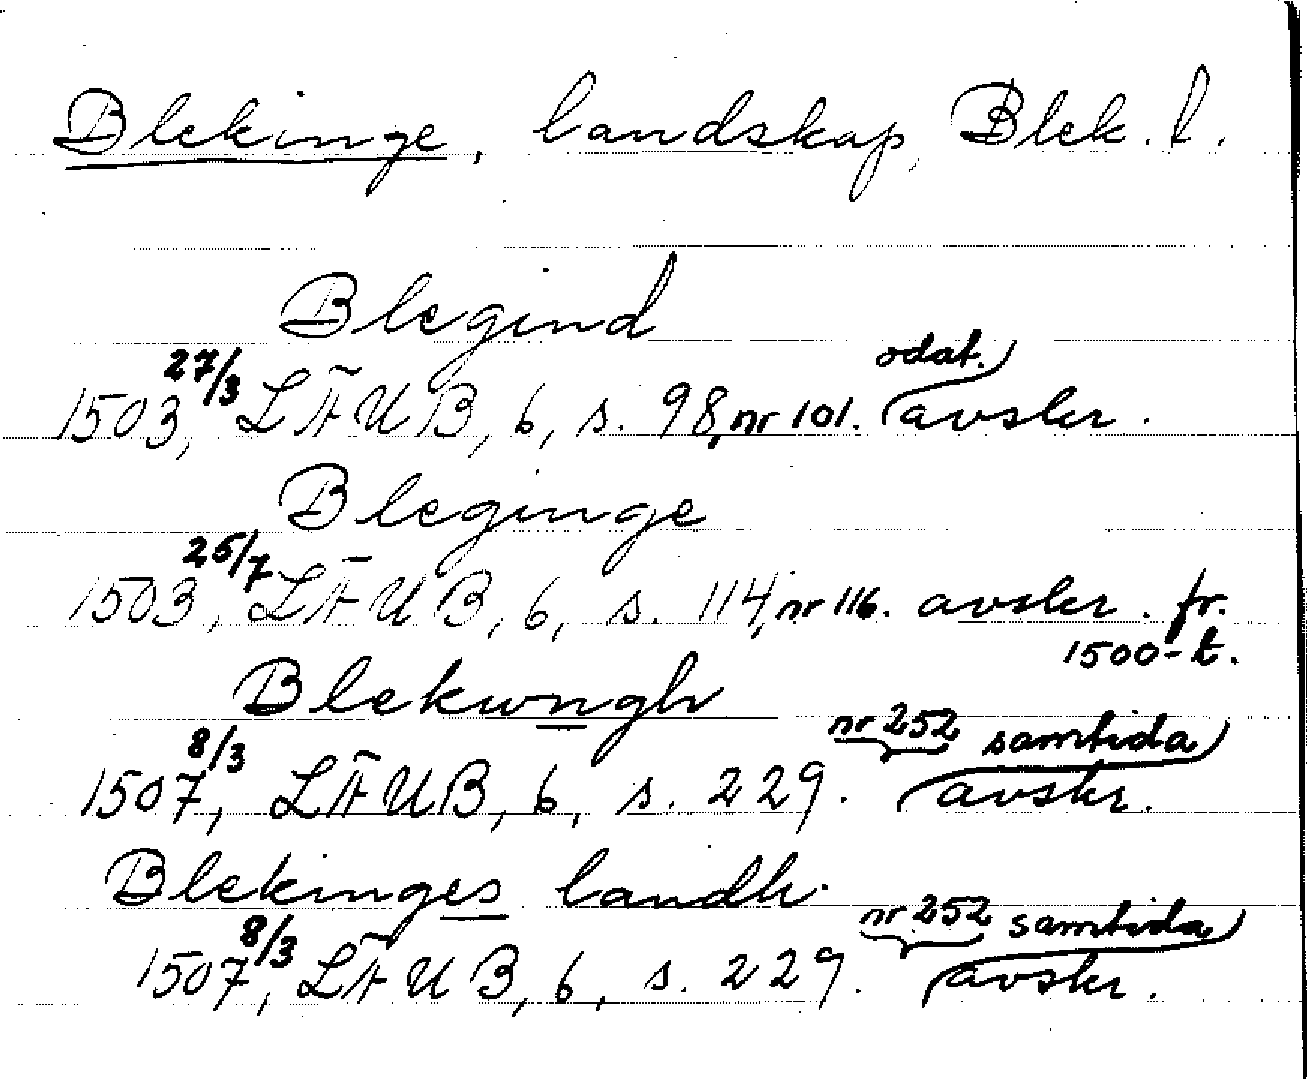 Blekinge, landskap, Blek. l.
Blegind
1503 27/3, LÄUB, 6, s. 98, nr 101. odat. avskr.
Bleginge
1503 25/7, LÄUB, 6, s. 114, nr 116. avskr. fr. 1500-t.
Blekwngh
1507 8/3, LÄUB, 6, s. 229. nr 252 samtida avskr.
Blekinges landh
1507 8/3, LÄUB, 6, s. 229. nr 252 samtida avskr.